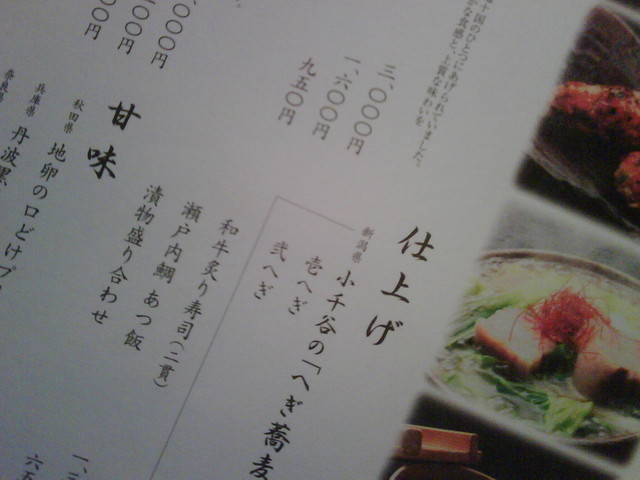 十国のひとつにあげられていました。
な食感と、上質な味わいを。
三、〇〇〇円
一、六〇〇円
九五〇円
仕上げ
新潟県 小千谷の「へぎ蕎麦
壱へぎ
弐へぎ
和牛炙り寿司(二貫)
瀬戸内鯛 あつ飯
漬物盛り合わせ
〇〇〇円
〇〇円
〇〇円
甘味
秋田県 地卵の口どけプ
兵庫県 丹波黒
奈良県
一、
六五